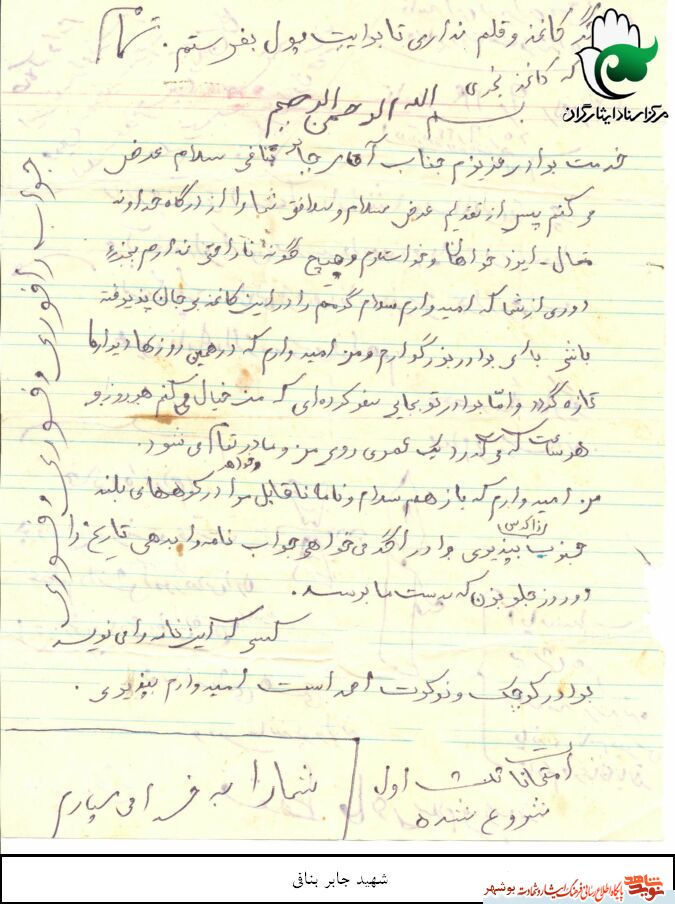 گر کاغذ و قلم نداری تا برایت پول بفرستم. تمام
که کاغذ بخری
مرکز اسناد ایثارگران
بسم الله الرحمن الرحیم
خدمت برادر عزیزم جناب آقای جابر بنافی سلام عرض
می کنم پس از تقدیم عرض سلام و سلامتی شما را از درگاه خداوند
متعال ـ ایزد خواهان و خواستارم و هیچ گونه ناراحتی ندارم بجزء
دوری از شما که امیدوارم سلام گرمم را در این کاغذ بی جان پذیرفته
باشی بای برادر بزرگوارم و من امیدوارم که در همین روزها دیدارها
تازه گردد و امّا برادر تو بجایی سفر کرده ای که من خیال می کنم هر روز و
هر ساعت که می گذرد یک عمری روی من و مادر تمام می شود.
من امیدوارم که باز هم سلام و نامه ناقابل مرا در کوههای بلند
جنوب از اکبر بپذیری برادر اگر می خواهی جواب نامه را بدهی تاریخ را
دو روز جلو بزن که بدست ما برسد.
کسی که این نامه را می نویسد
برادر کوچک و نوکرت احمد است امیدوارم بپذیری.
امتحانات ثلث اول
شروع شده
شما را به خدا می سپارم
جواب فوری و فوری و فوری
شهید جابر بنافی
نوید شاهد
پایگاه اطلاع رسانی فرهنگ ایثار و شهادت بوشهر